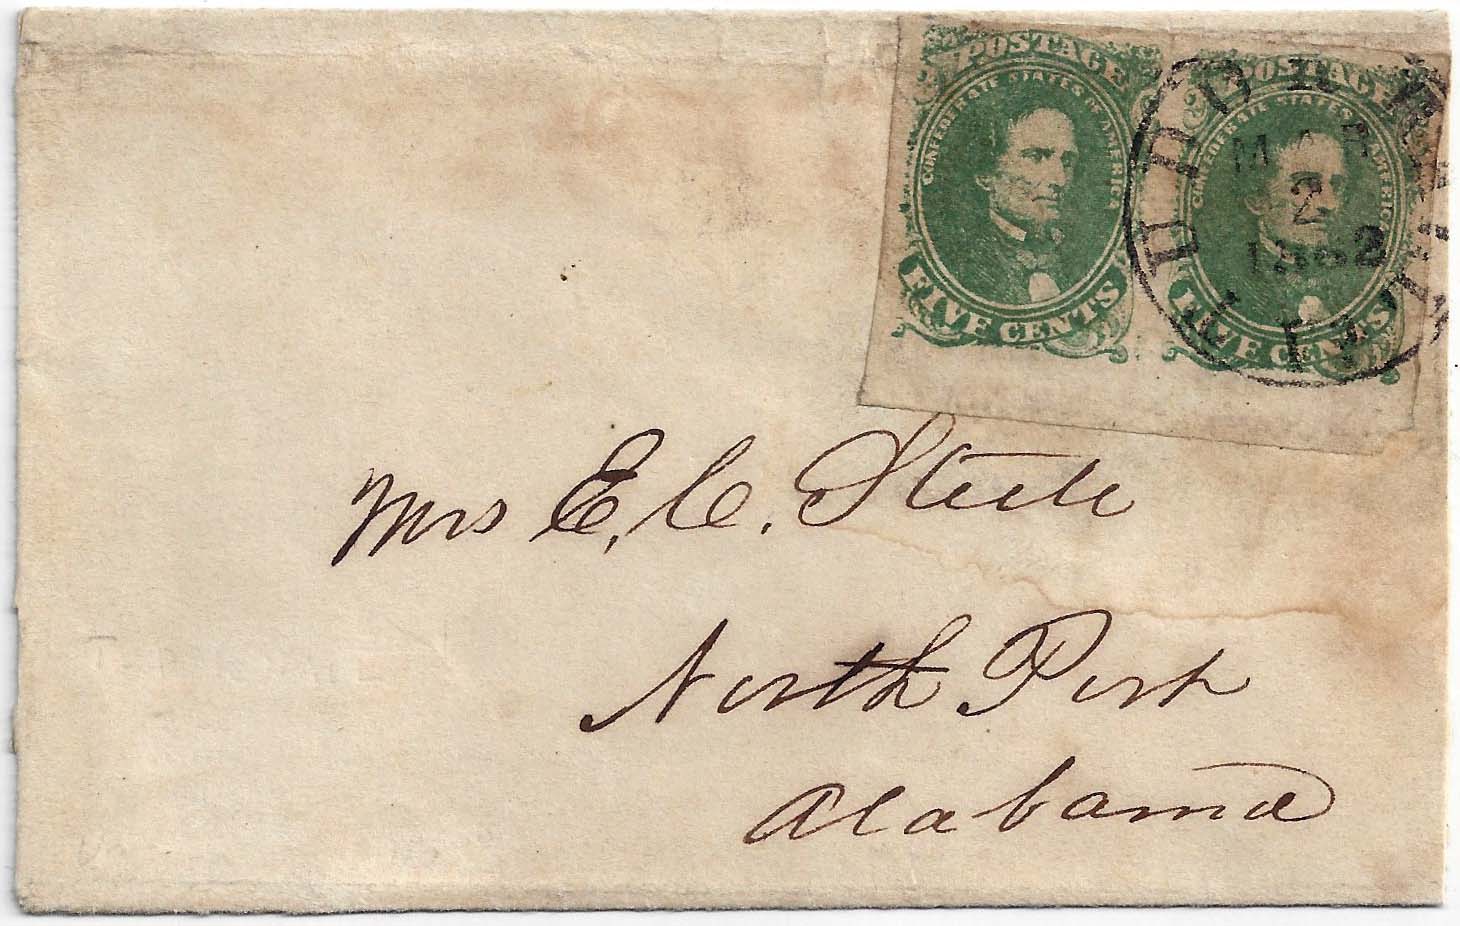 POSTAGE
CONFEDERATE STATES OF AMERICA
FIVE CENTS
POSTAGE
CONFEDERATE STATES OF AMERICA
FIVE CENTS
MAR
2
1862
Mrs E. C. Steele
North Port
Alabama